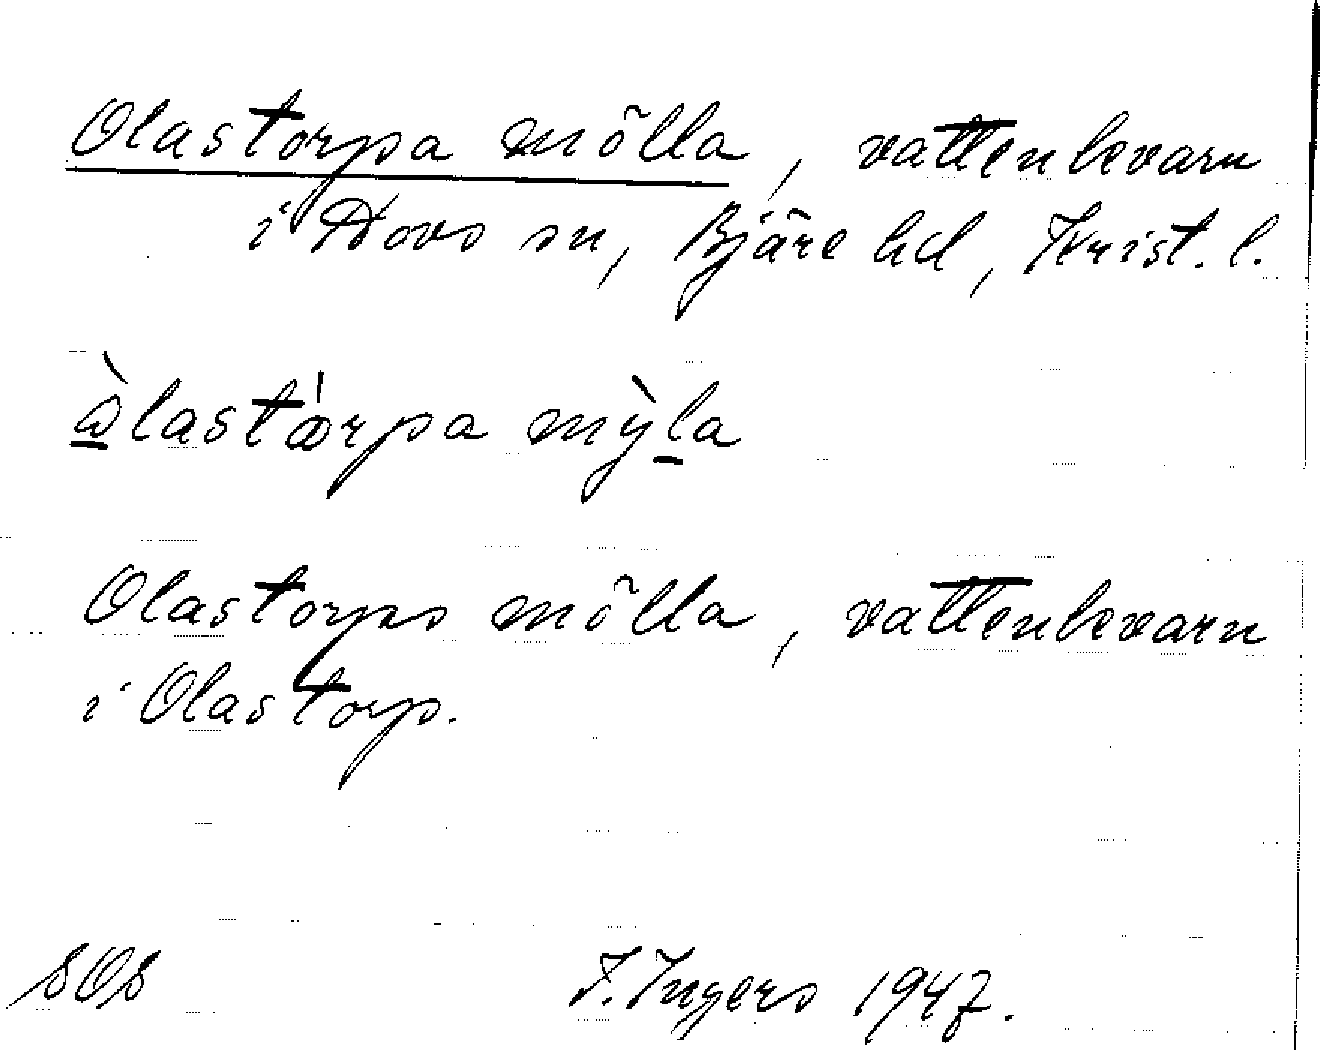 Olastorpa mölla, vattenkvarn
i Hovs sn, Bjäre hd, Krist. l.
àlastǻrpa mỳla
Olastorps mölla, vattenkvarn
i Olastorp.
SOS J. Ingers 1947.